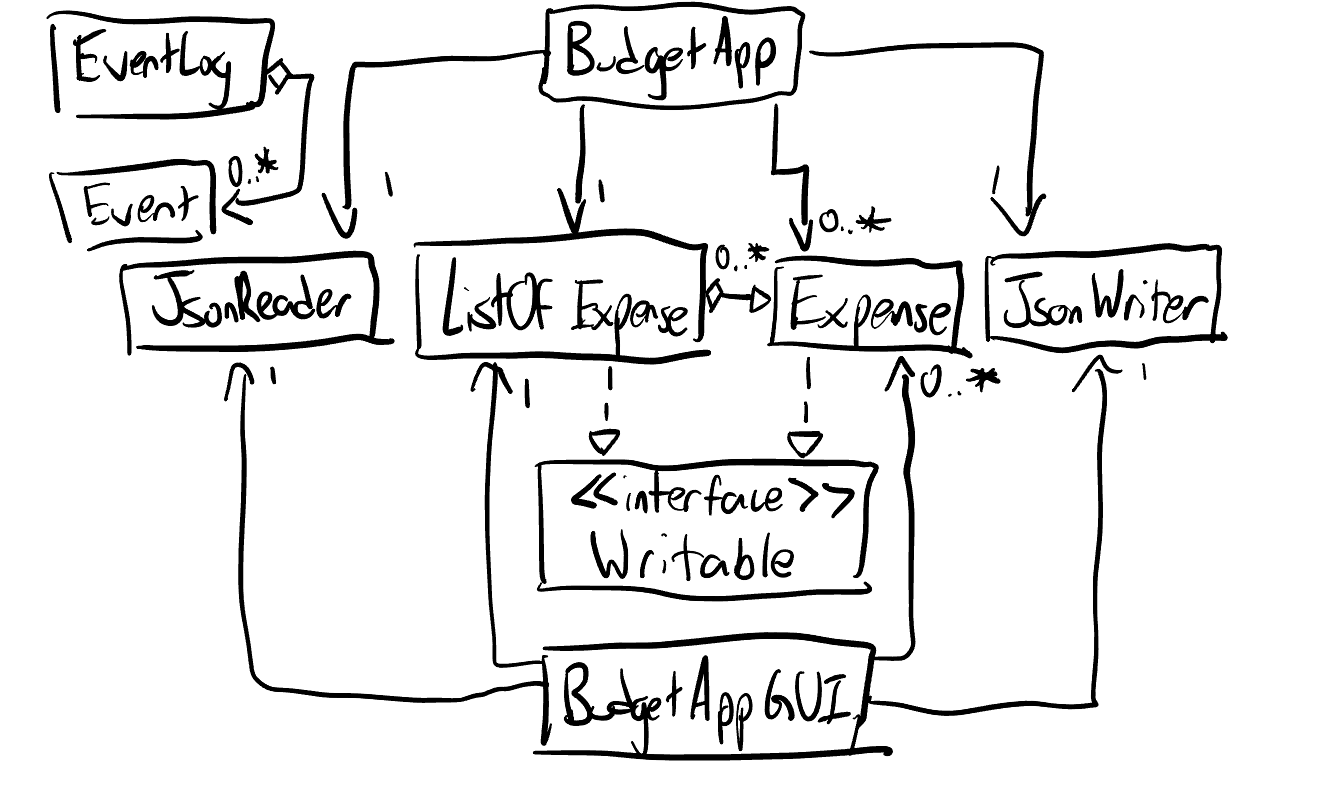 EventLog
BudgetApp
0..*
Event
1
1
1
0..*
0..*
JsonReader
ListOf Expense
Expense
JsonWriter
1
1
0..*
1
<<interface>>
Writable
BudgetAppGUI